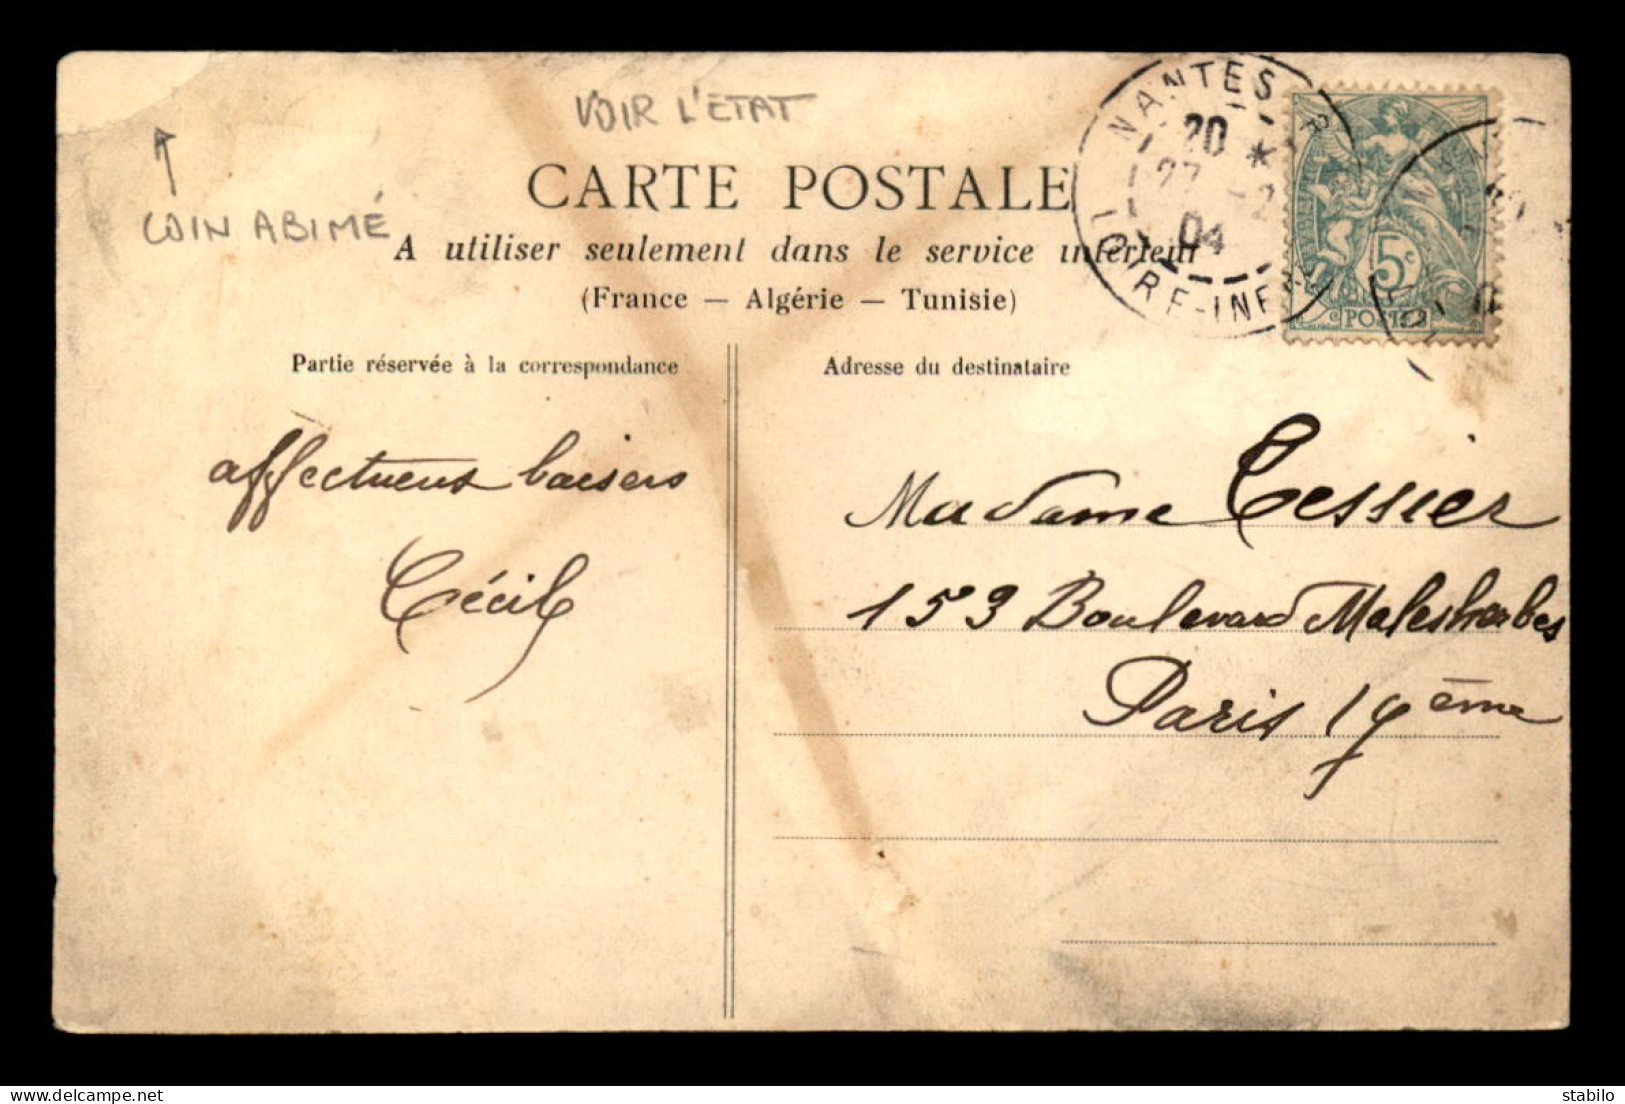 VOIR L'ETAT
COIN ABIMÉ
CARTE POSTALE
A utiliser seulement dans le service intérieur
(France — Algérie — Tunisie)
NANTES
20 *
27 -2
04
LOIRE-INFRE
5c
POSTES
Partie réservée à la correspondance
affectueux baisers
Cécile
Adresse du destinataire
Madame Tessier
153 Boulevard Malesherbes
Paris 17ème
delcampe.net
stabilo